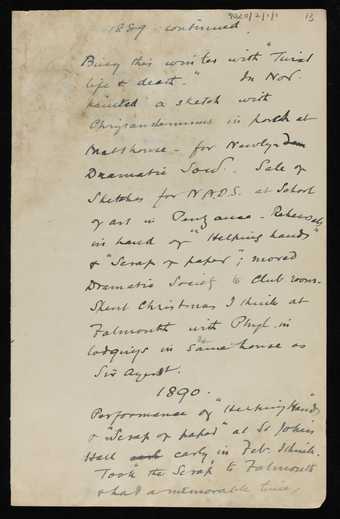 1889 continued.
13
Busy this winter with "Twixt
life & death." In Nov.
painted a sketch with
Chrysandemums in porch at
for Newlyn
Dramatic Soc. Sale of
Sketches for N.A.D.S. at School
of art in Penzance - Rehearsals
in hand of "Helping hands"
& "Scrap of paper"; moved
Dramatic Society to Club room.
Spent Christmas I think at
Falmouth with Phyl. in
lodgings in the same house as
Six August.
1890.
Performance of "Helping Hands"
& "Scrap of paper" at St John's
Hall early in Feb. I think.
Took the "Scrap" to Falmouth
& had a memorable time,